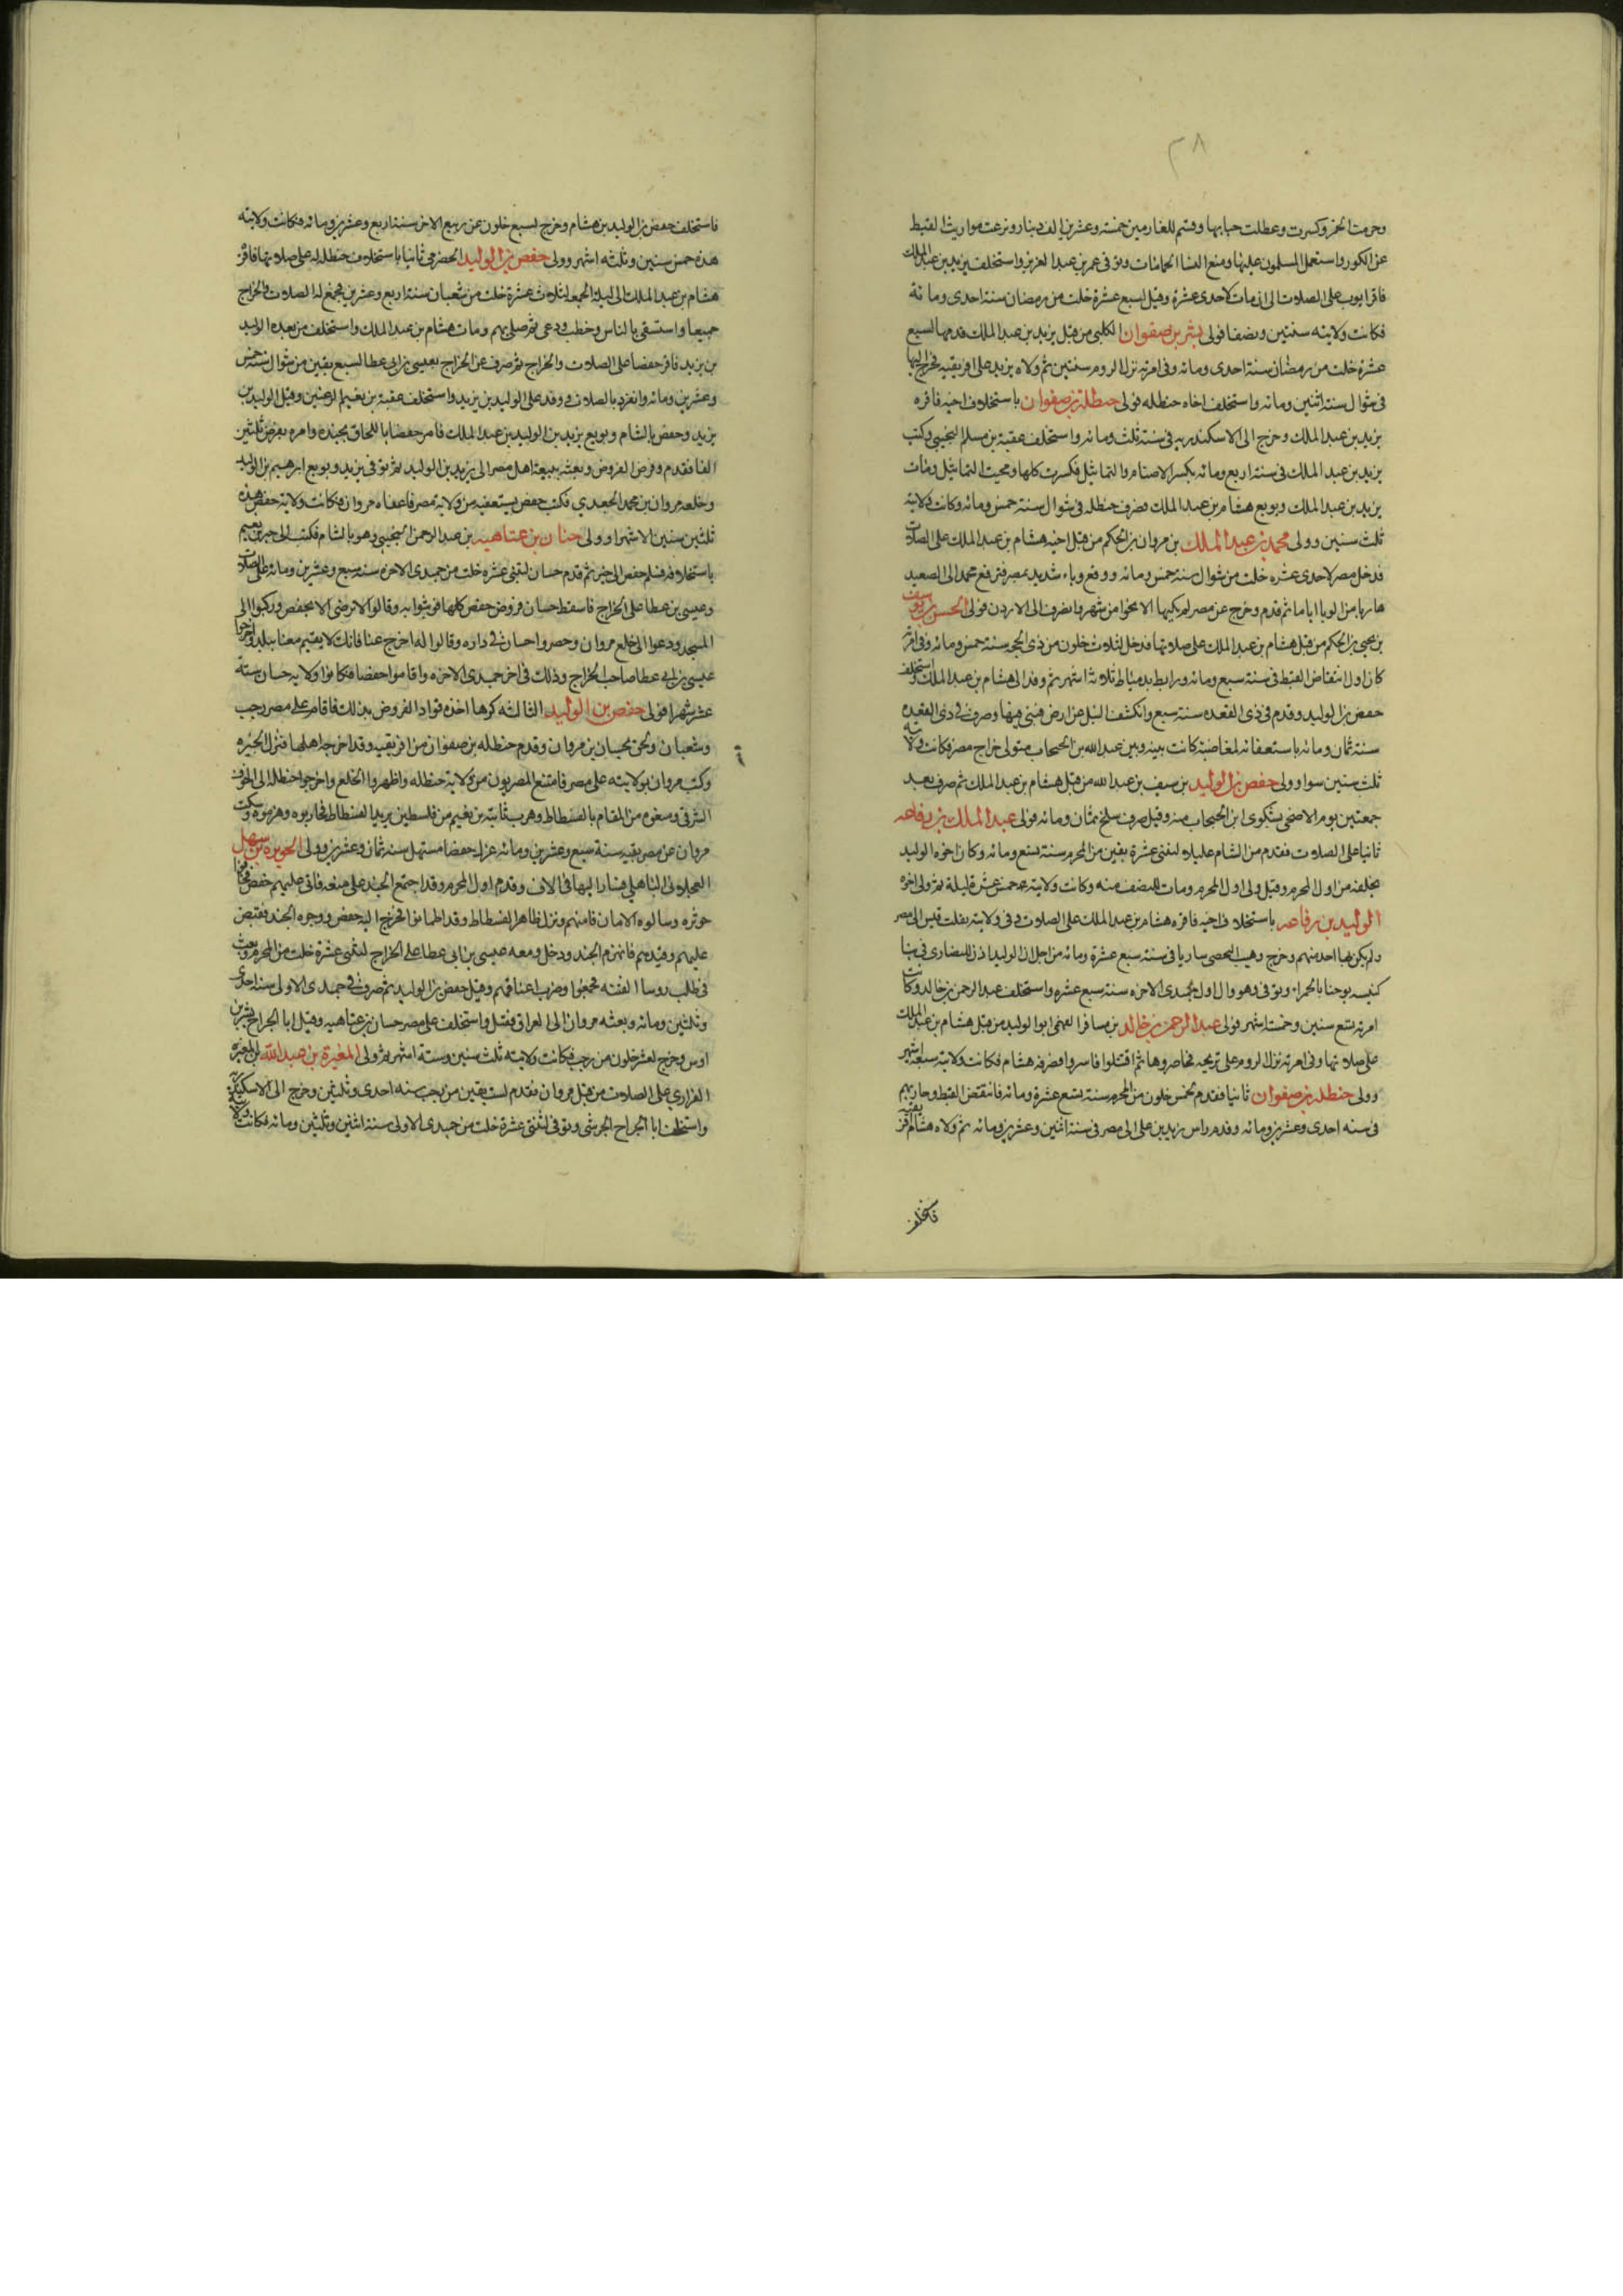 ٣٨
وحرمت الخمر وكسرت وعطلت حبابها وقسم للغارمين خمسة وعشرين الف دينار ونزعت مواريث القبط
عن الكور واستعمل المسلمون عليها ومنع النسا الحمامات وتوفى عمر بن عبد العزيز واستخلف يزيد بن عبد الملك
فاقر ايوب على الصلات الى ان مات لاحدى عشرة وقيل لسبع عشرة خلت من رمضان سنة احدى ومائة
فكانت ولايته سنتين ونصفا فولى بشر بن صفوان الكلبى من قبل يزيد بن عبد الملك قدمها لسبع
عشرة خلت من رمضان سنة احدى ومائه وفى امرته نزل الروم سنتين ثم ولاه يزيد على افريقيه فخرج اليها
فى شوال سنة اثنين ومائه واستخلف اخاه حنظله فولى حنظلة بن صفوان باستخلاف اخيه فاقره
يزيد بن عبد الملك وخرج الى الاسكندريه فى سنة ثلث ومائه واستخلف عقبة بن مسلم التجيبى وكتب
يزيد بن عبد الملك فى سنة اربع ومائه بكسر الاصنام والتماثيل فكسرت كلها ومحيت التماثيل ومات
يزيد بن عبد الملك وبويع هشام بن عبد الملك فصرف حنظله فى شوال سنة خمس ومائه وكانت ولايته
ثلث سنين وولى محمد بن عبد الملك بن مروان بن الحكم من قبل اخيه هشام بن عبد الملك على الصلات
فدخل مصر لاحدى عشره خلت من شوال سنة خمس ومائه ووقع وباء شديد بمصر فترفع محمد الى الصعيد
هاربا من الوبا اياما ثم قدم وخرج عن مصر لم يكيها الا نحوا من شهر وانصرف الى الاردن فولى الحسر بن يوسف
بن يحيى بن الحكم من قبل هشام بن عبد الملك على صلاتها فدخل لثلاث خلون من ذى الحجه سنة خمس ومائه وفى امرته
كان اول انتقاض القبط فى سنة سبع ومائه ورابط بدمياط ثلاثة اشهر ثم وفد الى هشام بن عبد الملك واستخلف
حفص بن الوليد وقدم فى ذى القعده سنة سبع وانكشف النيل عن ارض فبنى فيها وصرف فى ذى القعده
سنة ثمان ومائه باستعفائه لمغاضبة كانت بينه وبين عبد الله بن الحبحاب متولى خراج مصر فكانت ولايته
ثلث سنين سوا وولى حفص بن الوليد بن سيف بن عبد الله من قبل هشام بن عبد الملك ثم صرف بعد
جمعتين يوم الاضحى بشكوى ابن الحبحاب منه وقيل صرف سلخ ثمان ومائه فولى عبد الملك بن رفاعه
ثانيا على الصلات فقدم من الشام عليلا لثنتى عشرة بقين من المحرم سنة تسع ومائه وكان اخوه الوليد
يخلفه من اول المحرم وقيل ولى اول المحرم ومات للنصف منه وكانت ولايته خمس عشر قليلة ثم ولى اخوه
الوليد بن رفاعه باستخلاف اخيه فاقره هشام بن عبد الملك على الصلات وفى ولايته نقلت قيس الى مصر
ولم يكن بها احد منهم وخرج وهيب اليحصبى ساريا فى سنة سبع عشرة ومائه من اجل ان الوليد اذن للنصارى فى بنا
كنيسة يوحنا بالحمراء وتوفى وهو وال اول جمدى الاخره سنة سبع عشره واستخلف عبد الرحمن بن خالد وكانت
امرته تسع سنين وخمسة اشهر فولى عبد الرحمن بن خالد بن مسافر الفهمى ابو الوليد من قبل هشام بن عبد الملك
على صلاتها وفى امرته نزل الروم على تروجه فحاصروها ثم اقتتلوا فاسروا فصرفه هشام فكانت ولايته سبعة اشهر
وولى حنظله بن صفوان ثانيا فقدم لخمس خلون من المحرم سنة تسع عشرة ومائه فانتقض القبط وحاربهم
فى سنه احدى وعشرين ومائه وقدم راس زيد بن على الى مصر فى سنة اثنين وعشرين ومائه ثم ولاه هشام افريقيه
فاستخلف
فاستخلف حفص بن الوليد بن هشام وخرج لسبع خلون من ربيع الاخر سنة اربع وعشرين ومائه فكانت ولايته
هذه خمس سنين وثلثه اشهر وولى حفص بن الوليد الحضرمى ثانيا باستخلاف حنظله له على صلاتها فاقره
هشام بن عبد الملك الى ليلة الجمعه لثلاث عشرة خلت من شعبان سنة اربع وعشرين فجمع له الصلات والخراج
جميعا واستسقى بالناس وخطب ودعى ثم صلى بهم ومات هشام بن عبد الملك واستخلف من بعده الوليد
بن يزيد فاقر حفصا على الصلات والخراج ثم صرف عن الخراج بعيسى بن ابى عطا لسبع بقين من شوال سنة خمس
وعشرين ومائه وانفرد بالصلات ووفد على الوليد بن يزيد واستخلف عقبة بن نعيم الرعينى وقتل الوليد بن
يزيد وحفص بالشام وبويع يزيد بن الوليد بن عبد الملك فامر حفصا باللحاق بجنده وامره بفرض ثلثين
الفا فقدم وفرض الفروض وبعث ببيعة اهل مصر الى يزيد بن الوليد ثم توفى يزيد وبويع ابرهيم بن الوليد
وخلعه مروان بن محمد الجعدي فكتب حفص يستعفيه من ولاية مصر فاعفاه مروان فكانت ولاية حفص هذه
ثلثين سنين الا شهرا وولى حنان بن عتاهيه بن عبد الرحمن التجيبى وهو بالشام فكتب الى خير بن نعيم
باستخلافه فسلم حفص الى خير ثم قدم حسان لثنتى عشره خلت من جمدى الاخره سنة سبع وعشرين ومائه على الصلات
وعيسى بن عطا على الخراج فاسقط حسان فروض حفص كلها فوثبوا به وقالوا لا نرضى الا بحفص وركبوا الى
المسجد ودعوا الى خلع مروان وحصروا حسان فى داره وقالوا له اخرج عنا فانك لا تقيم معنا ببلد واخرجوا
عيسى بن ابى عطا صاحب الخراج وذلك فى اخر جمدى الاخره واقاموا حفصا فكانوا ولاية حسان ستة
عشر شهرا فولى حفص بن الوليد الثالثه كرها اخذه قواد الفروض بذلك فاقام على مصر رجب
وشعبان ولحق حسان بن مروان وقدم حنظله بن صفوان من افريقيه وقد اخرجه اهلها فنزل الجيزه
وكتب مروان بولايته على مصر فامتنع المصريون من ولاية حنظله واظهروا الخلع واخرجوا حنظله الى الحوف
الشرقى ومنعوه من المقام بالفسطاط وهرب ثابت بن نعيم من فلسطين يريد الفسطاط فحاربوه وهزموه وسكت
مروان عن مصر بقية سنة سبع وعشرين ومائه عزله حفصا مستهل سنة ثمان وعشرين وولى الحوثره بن سهل
العجلانى الباهلى فسار اليها فى الاف وقدم اول المحرم وقد اجتمع الجند على منعه فابى عليهم حفص فخافوا
حوثره وسالوه الامان فامنهم ونزل ظاهر الفسطاط وقد اطمانوا فخرج اليه حفص ووجوه الجند فقبض
عليهم وقيدهم فانهزم الجند ودخل ومعه عيسى بن ابى عطا على الخراج لثنتى عشرة خلت من المحرم وبعث
فى طلب روسا الفتنه فجمعوا وضرب اعناقهم وقتل حفص بن الوليد ثم صرف فى جمدى الاولى سنة احدى
وثلثين ومائه وبعثه مروان الى العراق فقتل واستخلف على مصر حسان بن عتاهيه وقيل ابا الجراح بشر بن
اوس وخرج لعشر خلون من رجب فكانت ولايته ثلث سنين وستة اشهر ثم ولى المغيرة بن عبد الله بن المغيره
الفزاري على الصلات من قبل مروان فقدم لست بقين من رجب سنه احدى وثلثين وخرج الى الاسكندريه
واستخلف ابا الجراح الجرشى وتوفى لثنتى عشرة خلت من جمدى الاولى سنة اثنين وثلثين ومائه فكانت ولايته